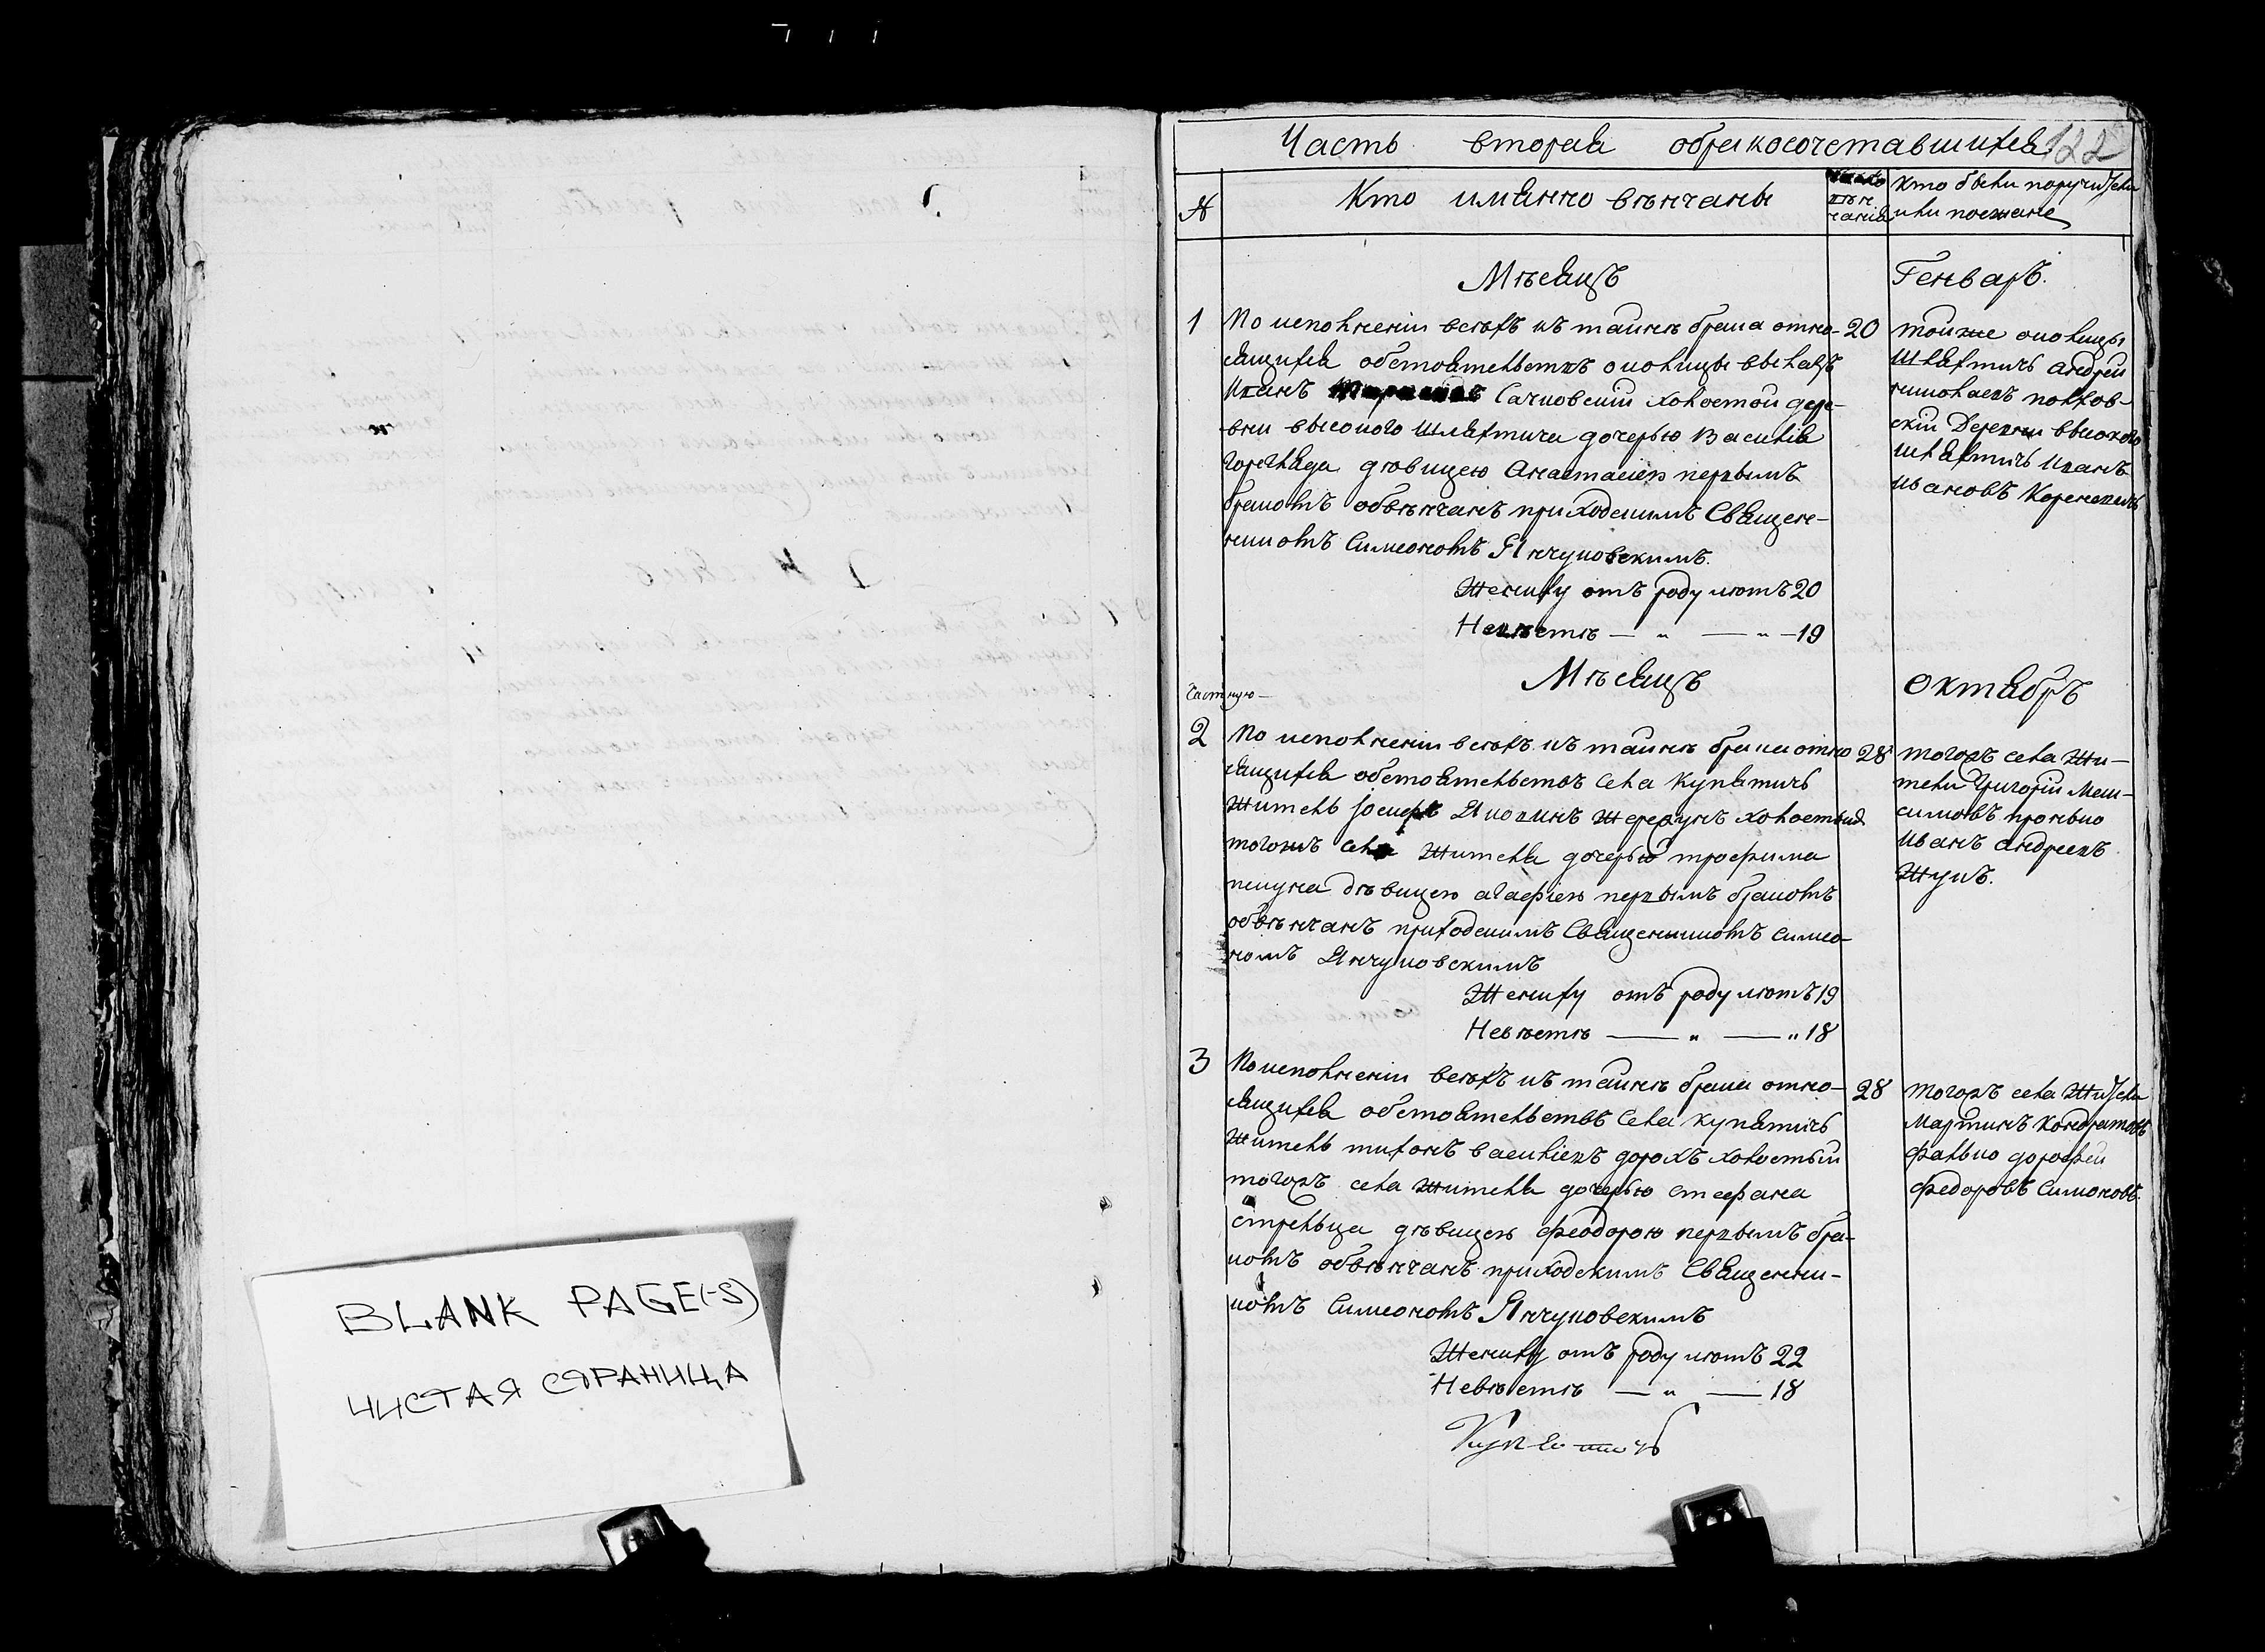 BLANK PAGE(-S)
ЧИСТАЯ СТРАНИЦА
Часть вторая обракосочетавшихся 122
№
Кто имянно вѣнчаны
вѣнчанія
Кто были поручители
или поезжане
Мѣсяцъ
Генварь.
1
По исполненіи всѣхъ къ таинѣ брака отно-
сящихся обстоятельствъ околицы
Иванъ Сачковскій холостой дере-
вни высокого Шляхтича дочерью Василія
дѣвицею Анастасіею первымъ
бракомъ обвѣнчанъ приходскимъ Священ-
никомъ Симеономъ Янчуковскимъ.
Жениху отъ роду лѣтъ 20
Невѣстѣ — „ — „ — 19
20
тойже околицы
Шляхтичъ андрей
николаевъ
скій Деревни высокого
шляхтичъ Иванъ
ивановъ
Мѣсяцъ
октябрь
2
По исполненіи всѣхъ къ таинѣ брака отно
сящихся обстоятельствъ села Купятичь
житель Іосифъ холостый
тогожъ села жителя дочерью трофима
дѣвицею агафіею первымъ бракомъ
обвѣнчанъ приходскимъ Священникомъ симео-
номъ Янчуковскимъ
Жениху отъ роду лѣтъ 19
Невѣстѣ — „ — „ 18
28
тогожъ села Жи-
тели Григорій Мак-
симовъ
иванъ андреевъ
Жукъ.
3
По исполненіи всѣхъ къ таинѣ брака отно-
сящихся обстоятельствъ села купятичь
житель тихонъ василіевъ холостый
тогожъ села жителя дочерью стефана
стрельца дѣвицею феодорою первымъ бра-
комъ обвѣнчанъ приходскимъ Священни-
комъ Симеономъ Янчуковскимъ
Жениху отъ роду лѣтъ 22
Невѣстѣ — „ — 18
28
тогожъ села Жители
Мартинъ Кондратовъ
дорофей
федоровъ
Купятичь